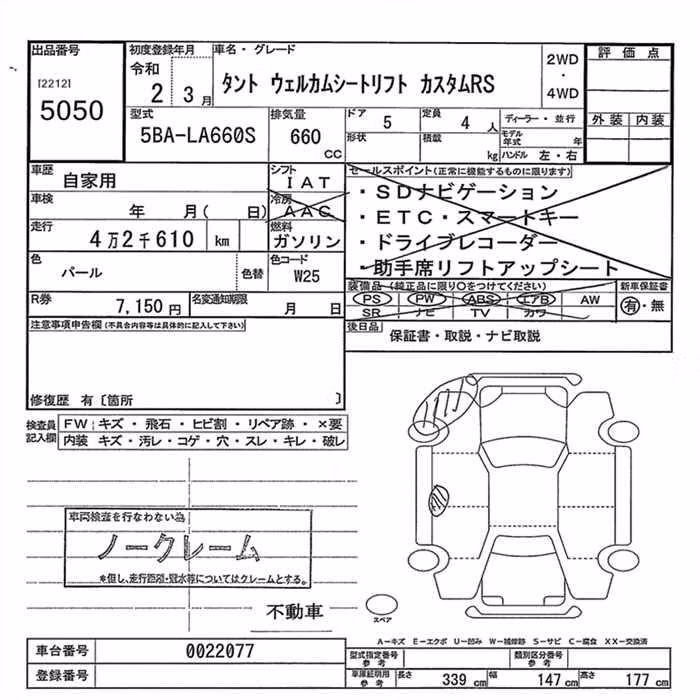 出品番号
[2212]
5050
初度登録年月
令和
2 3月
車名・グレード
タント ウェルカムシートリフト カスタムRS
2WD
・
4WD
評価点
外装 内装
型式
5BA-LA660S
排気量
660
cc
ドア 5
形状
定員 4 人
積載 kg
ディーラー・並行
モデル年式 年
ハンドル 左・右
車歴 自家用
シフト IAT
車検 年 月( 日)
冷房 AAC
走行 4万2千610 km
燃料 ガソリン
色 パール 色替
色コード W25
R券 7,150円
名変通知期限 月 日
セールスポイント(正常に機能するものに限ります)
・SDナビゲーション
・ETC・スマートキー
・ドライブレコーダー
・助手席リフトアップシート
装備品(純正品に限り○をつけてください)
PS PW ABS エアB AW
SR ナビ TV カワ
新車保証書
有・無
後日品 保証書・取説・ナビ取説
注意事項申告欄(不具合内容等は具体的に記入して下さい)
修復歴 有〔箇所 〕
検査員記入欄
FW キズ・飛石・ヒビ割・リペア跡・×要
内装 キズ・汚レ・コゲ・穴・スレ・キレ・破レ
車両検査を行なわない為
ノークレーム
※但し、走行距離・冠水等についてはクレームとする。
不動車
スペア
A－キズ E－エクボ U－凹み W－補修跡 S－サビ C－腐食 XX－交換済
車台番号 0022077
登録番号
型式指定番号 参考
類別区分番号 参考
車庫証明用 参考 長さ 339 cm 幅 147 cm 高さ 177 cm